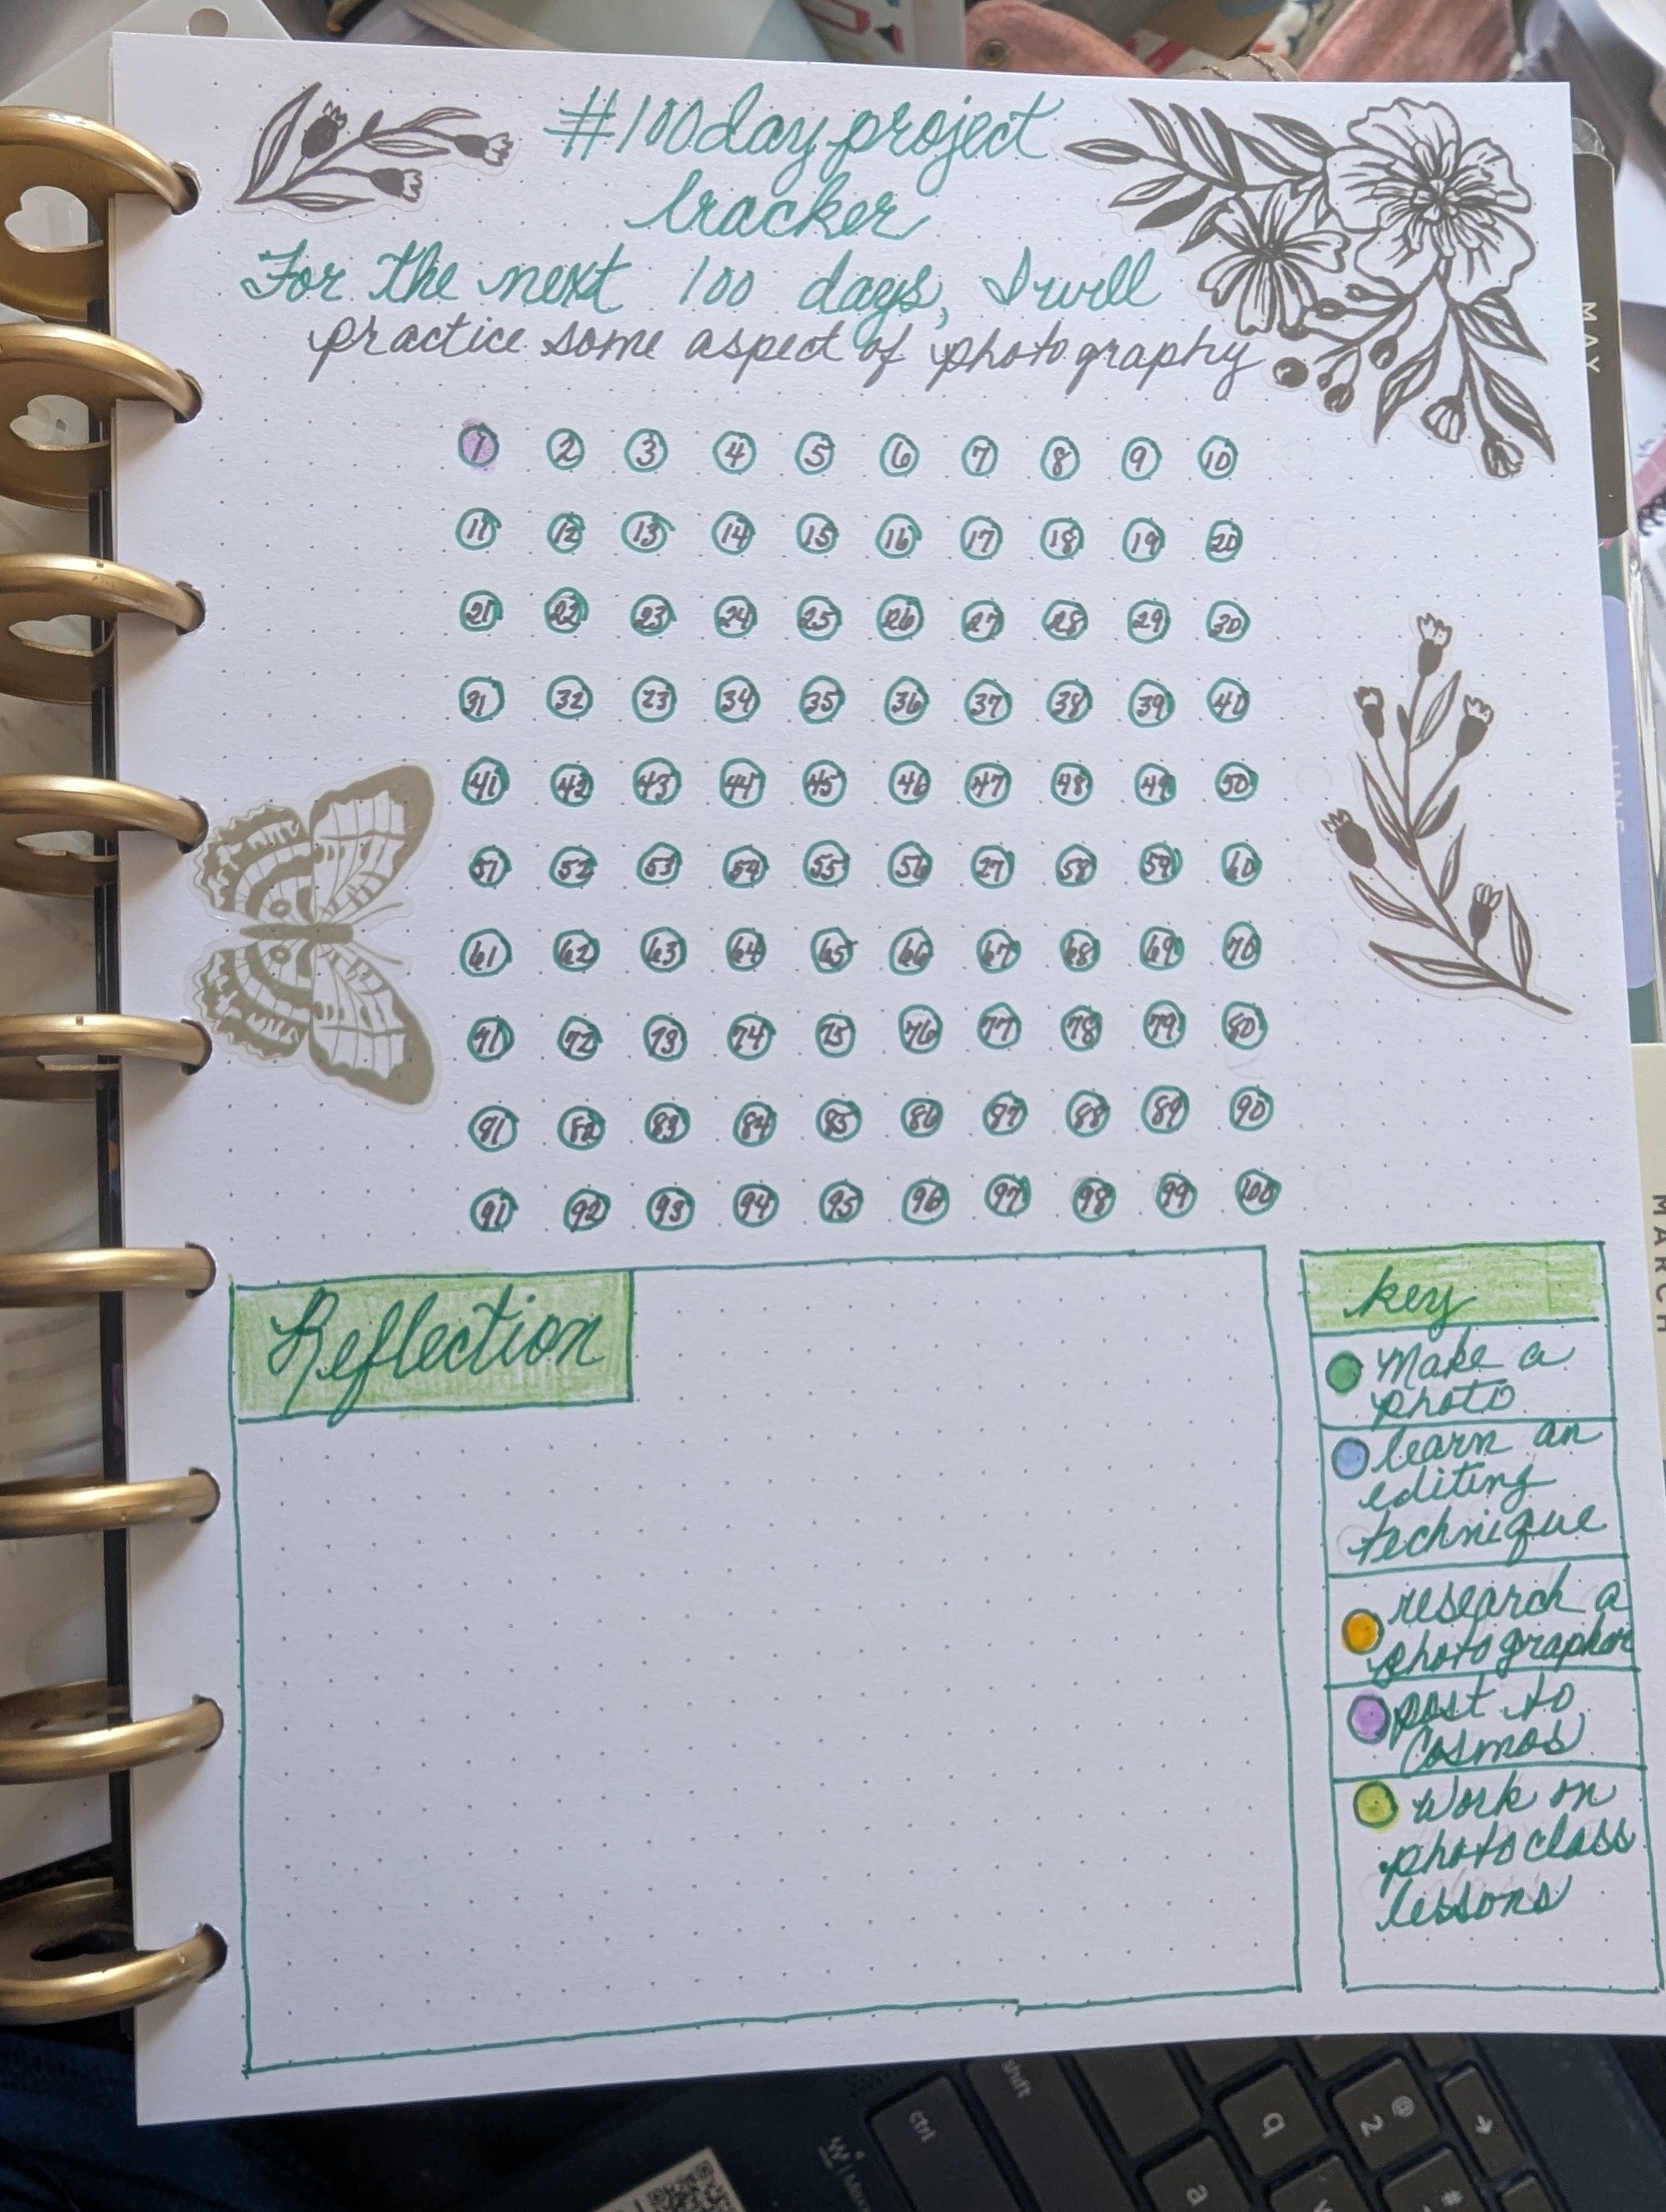 #100dayproject
tracker
For the next 100 days, I will
practice some aspect of photography
1 2 3 4 5 6 7 8 9 10
11 12 13 14 15 16 17 18 19 20
21 22 23 24 25 26 27 28 29 30
31 32 23 34 35 36 37 38 39 40
41 42 43 44 45 46 47 48 49 50
51 52 53 54 55 56 27 58 59 60
61 62 63 64 65 66 67 68 69 70
71 72 73 74 75 76 77 78 79 80
81 82 83 84 85 86 87 88 89 90
91 92 93 94 95 96 97 98 99 100
Reflection
key
Make a
photo
learn an
editing
technique
research a
photographer
post to
Cosmos
Work on
photo class
lessons
MAY
JUNE
MARCH
ctrl
shift
q
@
2
a
#